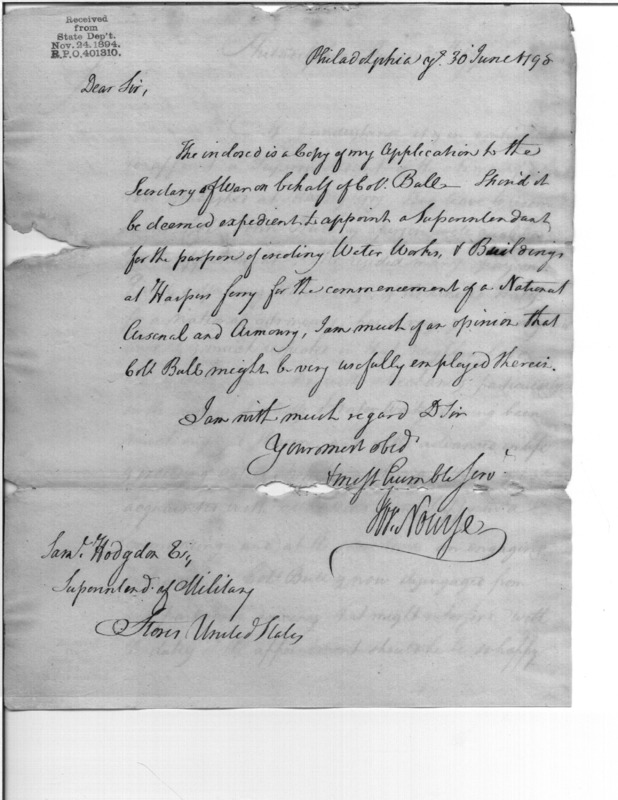 Received
from
State Dep't.
Nov. 24. 1894.
R.P.O. 401310.
Philadelphia yᵉ 30 June 1798
Dear Sir,
The inclosed is a Copy of my Application to the
Secretary of War on behalf of Colᵒ. Ball — Shou'd it
be deemed expedient to appoint a Superintendant
for the purpose of erecting Water Works, & Buildings
at Harpers ferry for the commencement of a National
Arsenal and Armoury, I am much of an opinion that
Colᵒ Ball might be very usefully employed therein.
I am with much regard D Sir
Your most obedᵗ
& most humble Servᵗ
Joˢ. Nourse
Samˡ. Hodgdon Esq,
Superintendᵗ of Military
Stores United States